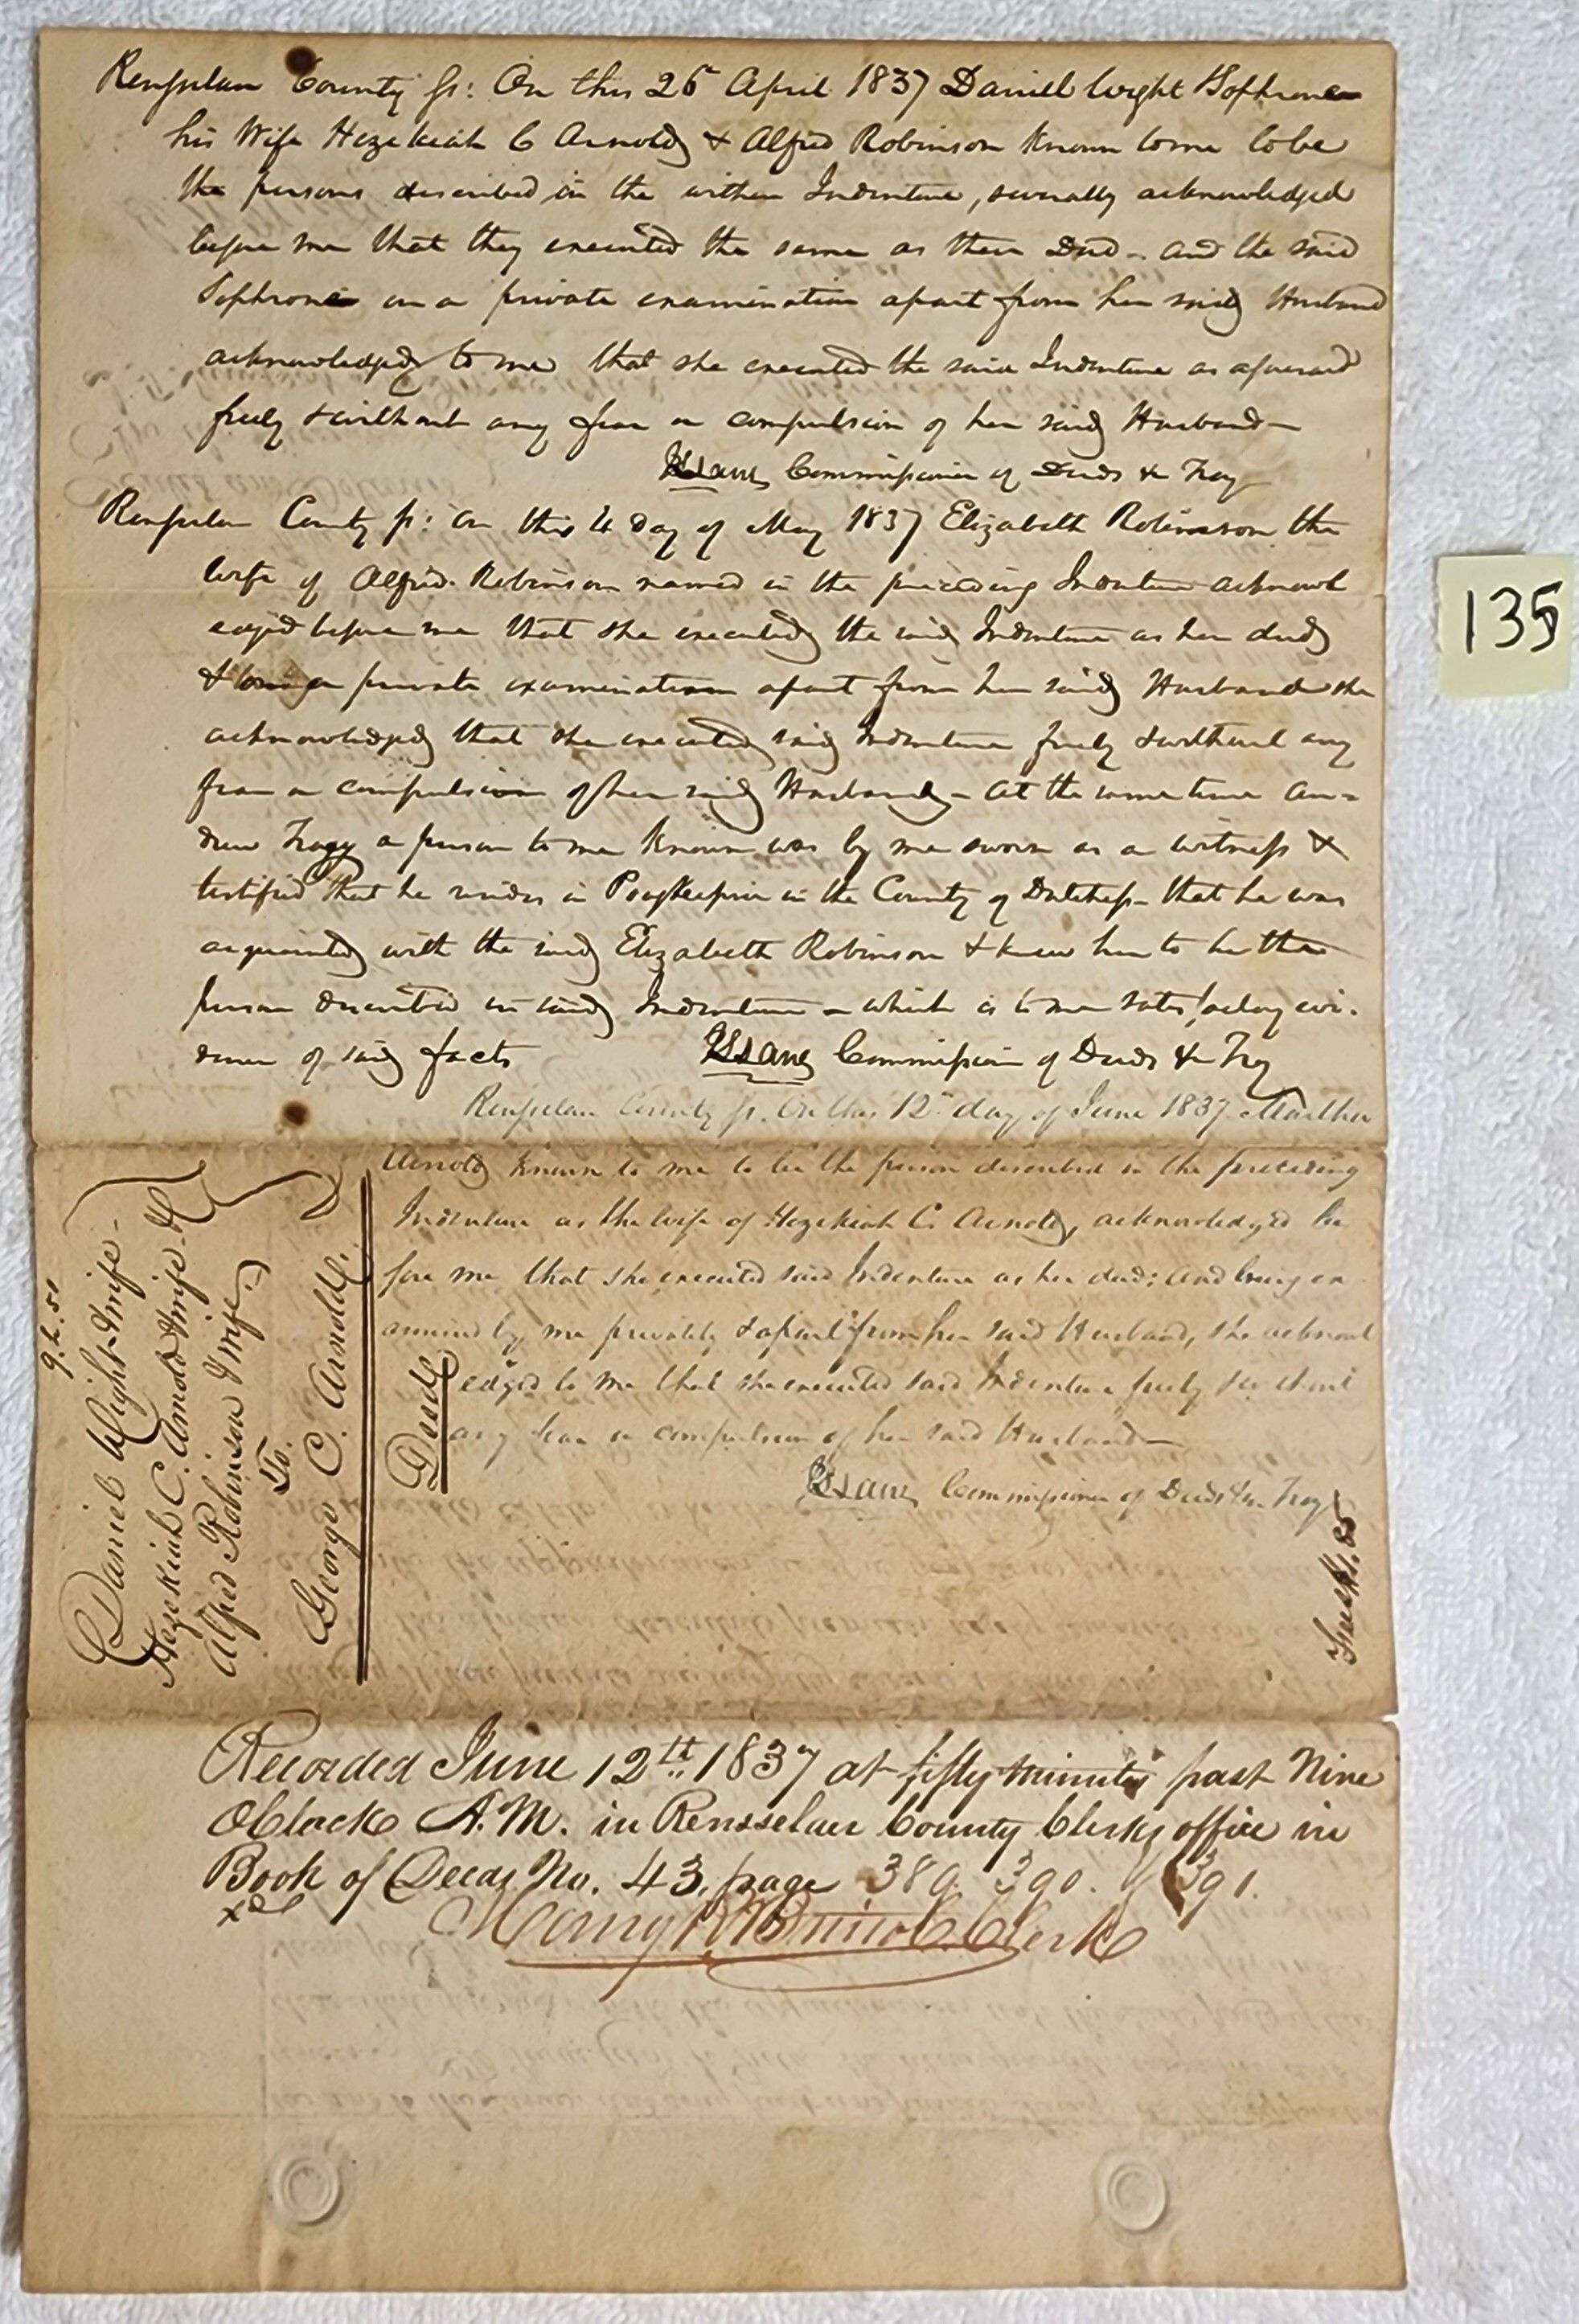 Rensselaer County ss: On this 26 April 1837 Daniel Wight & Sophrone
his Wife Hezekiah C Arnold & Alfred Robinson known to me to be
the persons described in the within Indenture, severally acknowledged
before me that they executed the same as their Deed - and the said
Sophrone on a private examination apart from her said Husband
acknowledged to me that she executed the said Indenture as aforesaid
freely & without any fear or compulsion of her said Husband -
Commissioner of Deeds &c Troy
Rensselaer County ss: On this 4 Day of May 1837 Elizabeth Robinson the
wife of Alfred Robinson named in the preceding Indenture acknowl
edged before me that she executed the said Indenture as her deed
& on a private examination apart from her said Husband she
acknowledged that she executed said Indenture freely & without any
fear or compulsion of her said Husband - At the same time An=
drew Tracy a person to me known was by me sworn as a witness &
testified that he resides in Poughkeepsie in the County of Dutchess - that he was
acquainted with the said Elizabeth Robinson & knew her to be the
person described in said Indenture - which is to me satisfactory evi-
dence of said facts Commissioner of Deeds &c Troy
Rensselaer County ss. On this 12th day of June 1837 Martha
Arnold known to me to be the person described in the preceding
Indenture as the wife of Hezekiah C. Arnold, acknowledged be
fore me that she executed said Indenture as her deed: and being ex
amined by me privately & apart from her said Husband, she acknowl
edged to me that she executed said Indenture freely & without
any fear or compulsion of her said Husband -
Commissioner of Deeds &c. Troy
Daniel Wight & Wife -
Hezekiah C. Arnold & Wife &
Alfred Robinson & Wife
To.
George C. Arnold.
Deed
Recorded June 12th 1837 at fifty minutes past Nine
O Clock A.M. in Rensselaer County Clerks office in
Book of Deeds No. 43, page 389. 390. & 391.
Clerk
135